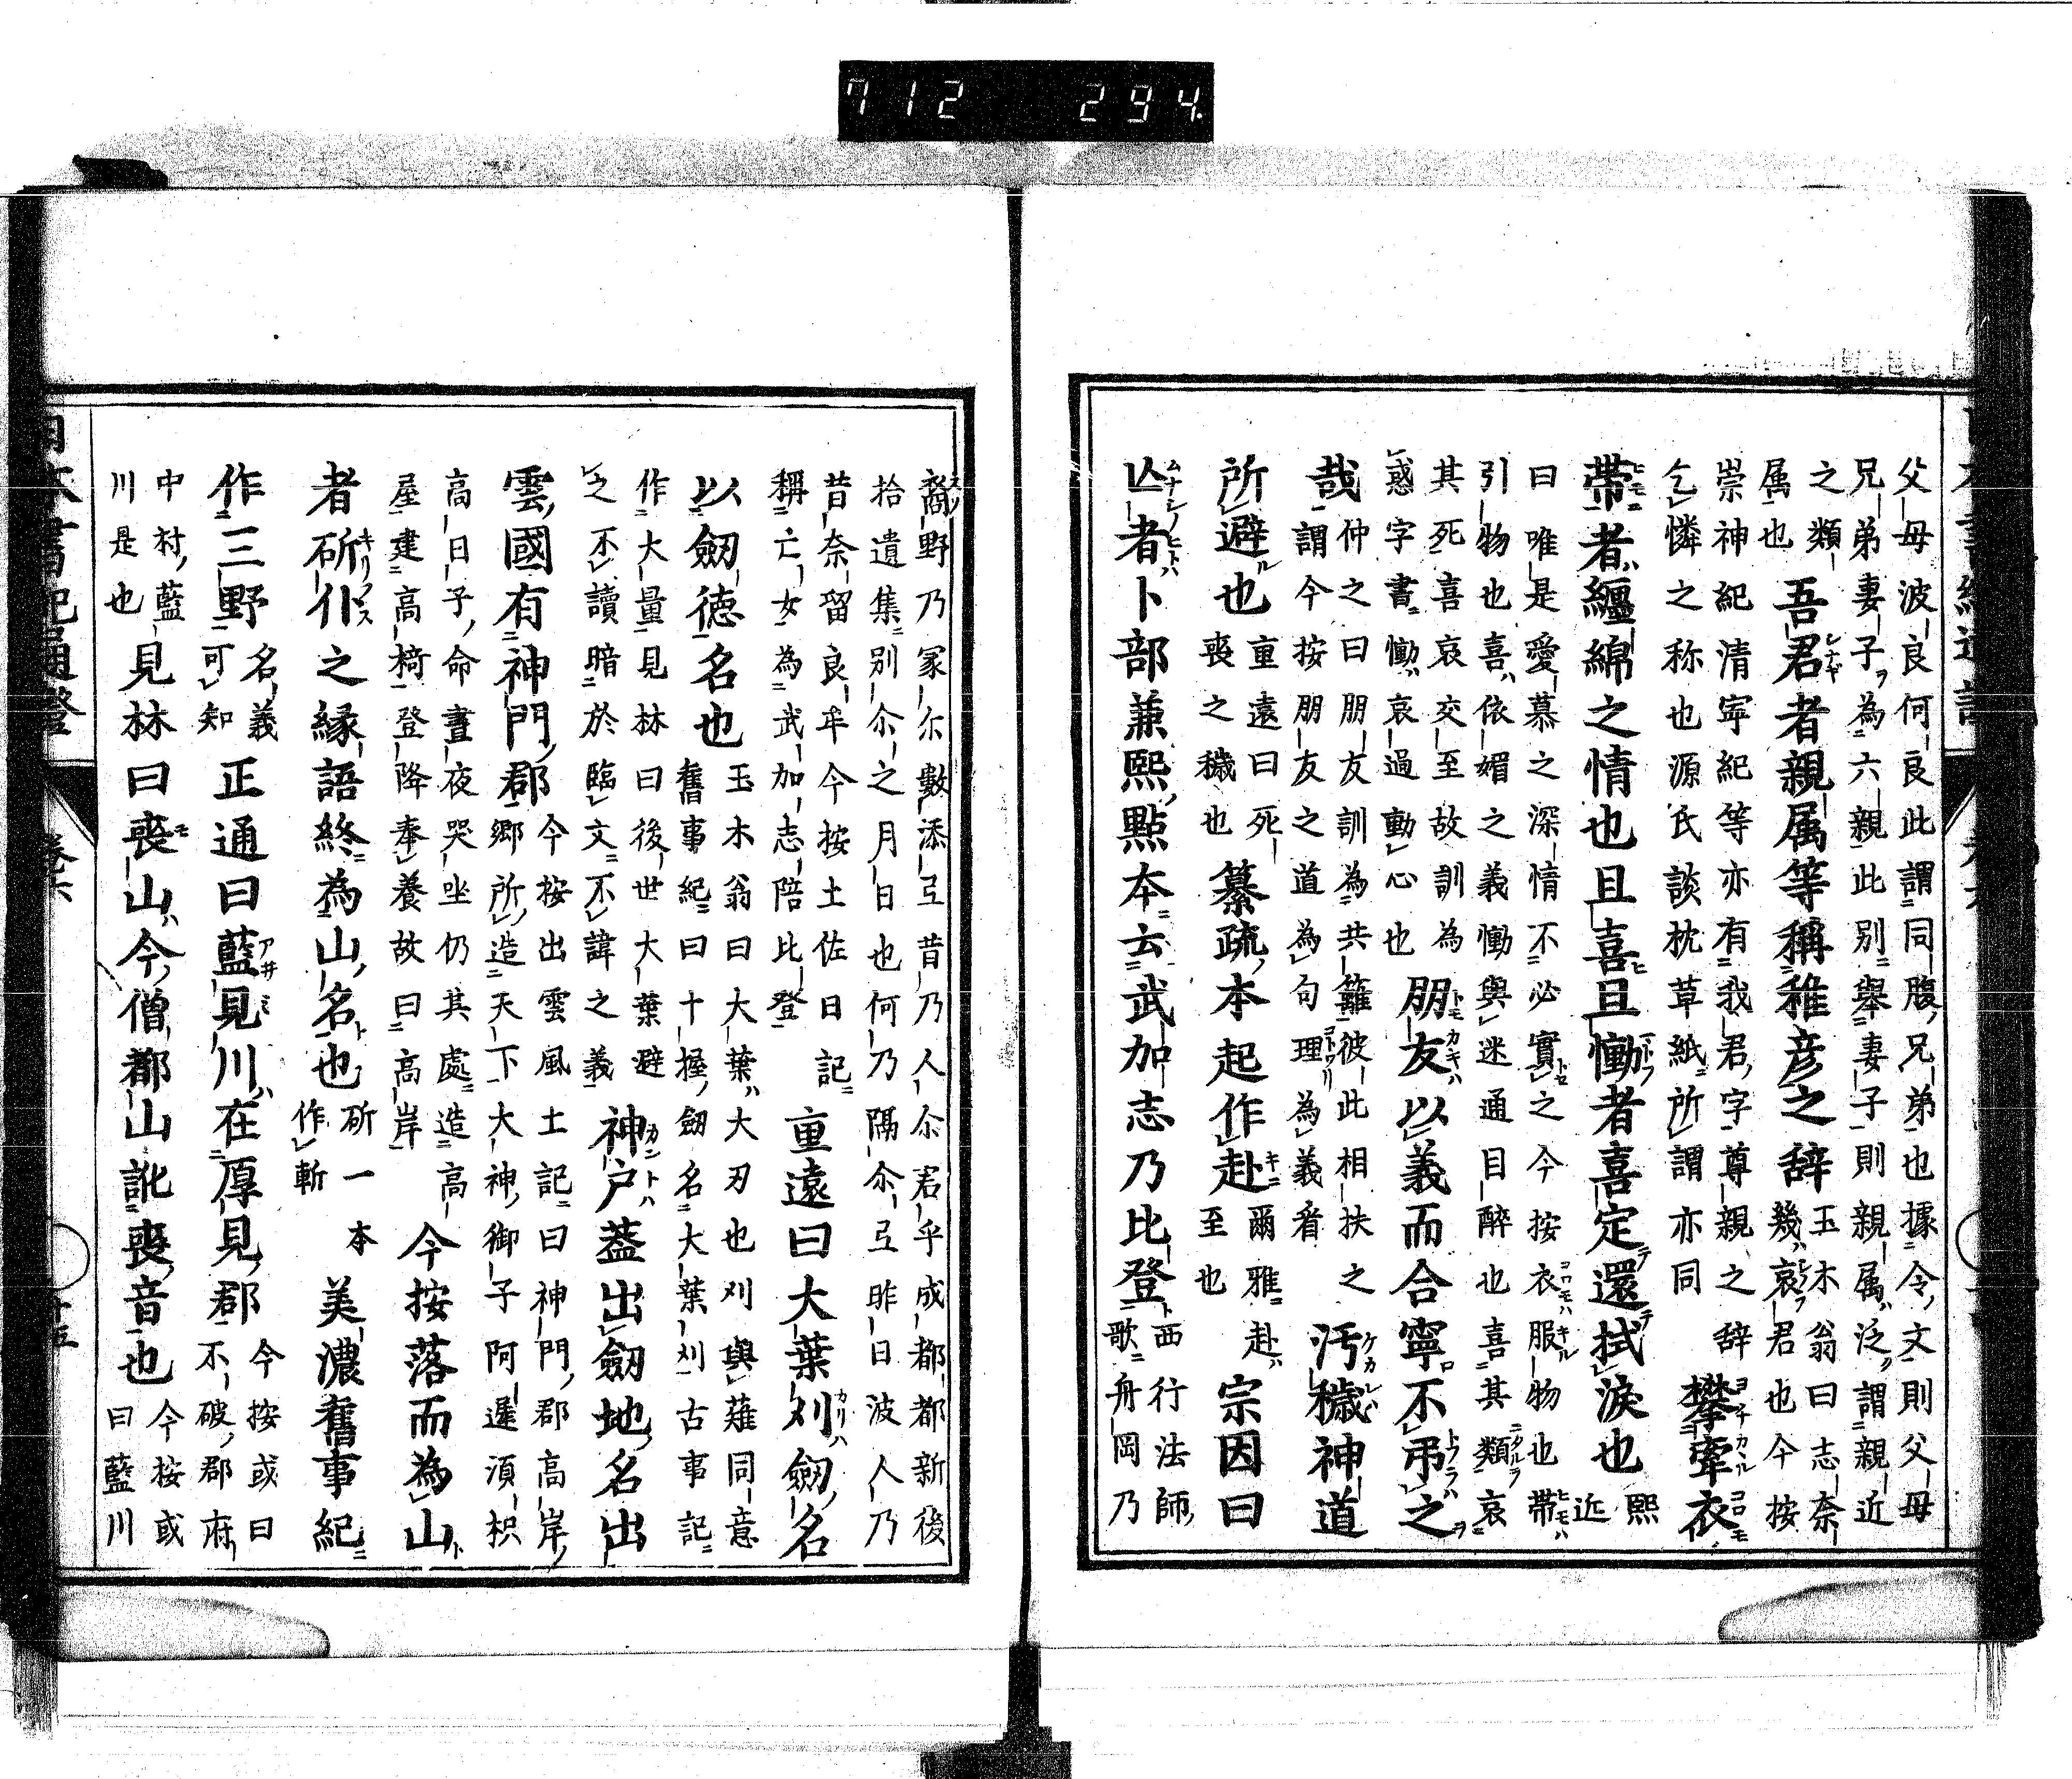 父母波良何良此謂同腹兄弟也據令文則父母
兄弟妻子為六親此別舉妻子則親属泛謂親近
之類
属也
吾君者親属等稱稚彦之辞
玉木翁曰志奈
幾哀君也今按
崇神紀清寧紀等亦有我君字尊親之辞
乞憐之称也源氏談枕草紙所謂亦同
攀牽衣
帯者纏綿之情也且喜且慟者喜定還拭淚也
熙
近
曰唯是愛慕之深情不必實之今按衣服物也帯
引物也喜依媚之義慟與迷通目醉也喜其類哀
其死喜哀交至故訓為
惑字書慟哀過動心也
朋友以義而合寧不弔之
哉
仲之曰朋友訓為共籬彼此相扶之
謂今按朋友之道為句理為義看
汚穢神道
所避也
重遠曰死
喪之穢也
纂疏本起作赴
爾雅赴
至也
宗因曰
亾者卜部兼熙點本云武加志乃比登
西行法師
歌舟岡乃
裔野乃冢尓數添弖昔乃人尒君乎成都都新後
拾遺集別尒之月日也何乃隔尒弖昨日波人乃
昔奈留良牟今按土佐日記
稱亡女為武加志陪比登
重遠曰大葉刈劔名
以劔徳名也
玉木翁曰大葉大刃也刈與薙同意
舊事紀曰十握劔名大葉刈古事記
作大量見林曰後世大葉避
之不讀暗於臨文不諱之義
神戸葢出劔地名出
雲國有神門郡
今按出雲風土記曰神門郡高岸
郷所造天下大神御子阿遲須枳
高日子命晝夜哭坐仍其處造高
屋建高椅登降奉養故曰高岸
今按落而為山
者斫仆之縁語終為山名也
斫一本
作斬
美濃舊事紀
作三野
名義
可知
正通曰藍見川在厚見郡
今按或曰
不破郡府
中村藍
川是也
見林曰喪山今僧都山訛喪音也
今按或
曰藍川
712 294.